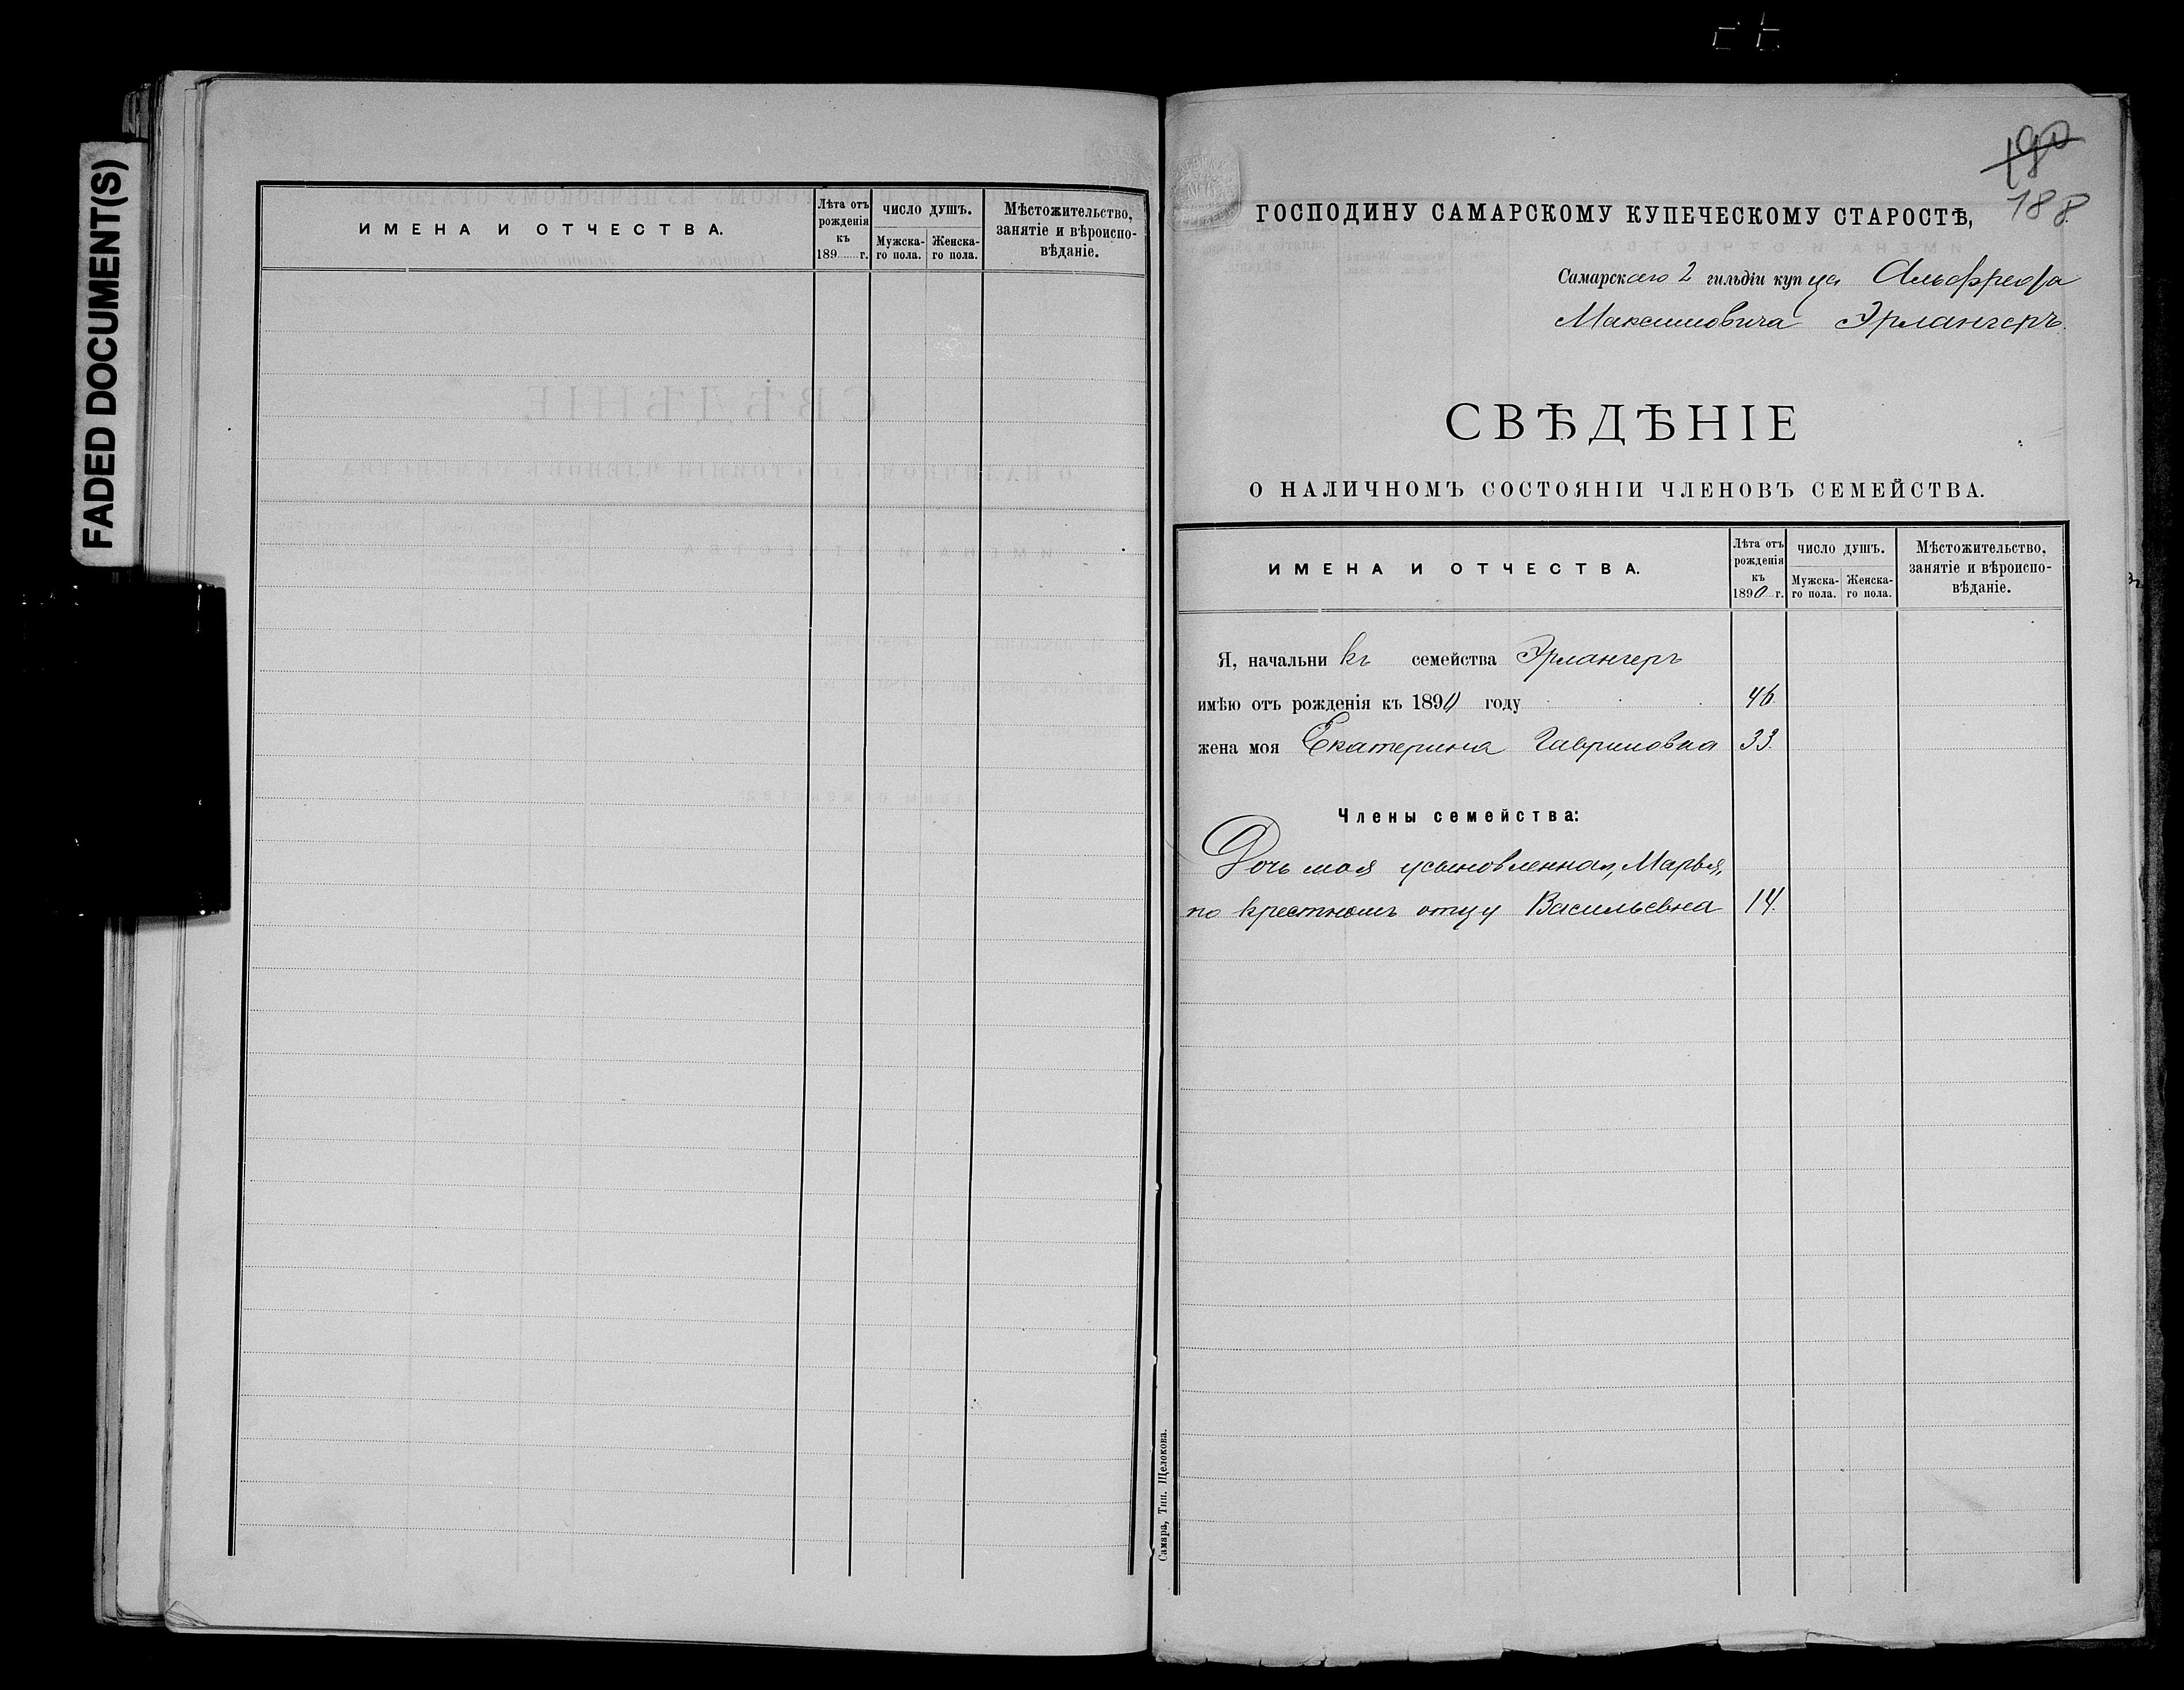 FADED DOCUMENT(S)
ИМЕНА И ОТЧЕСТВА.
Лѣта отъ рожденія къ 189 г.
ЧИСЛО ДУШЪ.
Мужска-го пола.
Женска-го пола.
Мѣстожительство, занятіе и вѣроиспо-вѣданіе.
190
188
ГОСПОДИНУ САМАРСКОМУ КУПЕЧЕСКОМУ СТАРОСТѢ,
Самарскаго 2 гильдіи купца Альфреда
Максимовича Эрлангеръ.
СВѢДѢНІЕ
О НАЛИЧНОМЪ СОСТОЯНІИ ЧЛЕНОВЪ СЕМЕЙСТВА.
ИМЕНА И ОТЧЕСТВА.
Лѣта отъ рожденія къ 1890 г.
ЧИСЛО ДУШЪ.
Мужска-го пола.
Женска-го пола.
Мѣстожительство, занятіе и вѣроиспо-вѣданіе.
Я, начальникъ семейства Эрлангеръ
имѣю отъ рожденія къ 1890 году 46.
жена моя Екатерина Гавриловна 33.
Члены семейства:
Дочь моя усыновленная, Марья,
по крестномъ отцу Васильевна 14.
Самара, Тип. Щелокова.